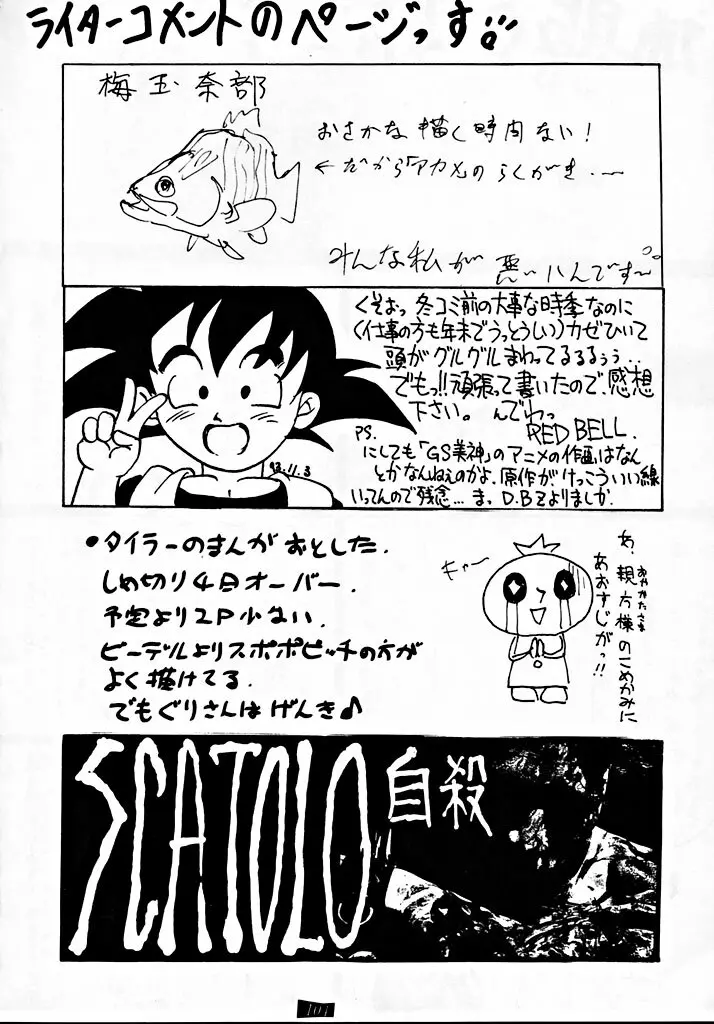 ライターコメントのページっす!!
梅玉奈部
おさかな描く時間ない!
←だから「アカメ」のらくがき・・〜
みんな私が悪いんです〜
くそぉっ 冬コミ前の大事な時季なのに
(仕事の方も年末でうっとうしい)カゼひいて
頭がグルグルまわってるるるぅぅ..
でもっ!!頑張って書いたので、感想
下さい。 んでわっ
RED BELL.
PS.
にしても「GS美神」のアニメの作画はなん
とかなんねぇのかよ、原作がけっこういい線
いってんので残念…ま、D.B.Zよりましか.
93.11.3
•タイラーのまんがおとした.
しめ切り4日オーバー.
予定より2P少ない.
ビーデルよりスポポビッチの方が
よく描けてる.
でもぐりさんはげんき♪
キャー
あ、親方様のこめかみに
おやかたさま
あおすじがっ!!
SCATOLO自殺
101